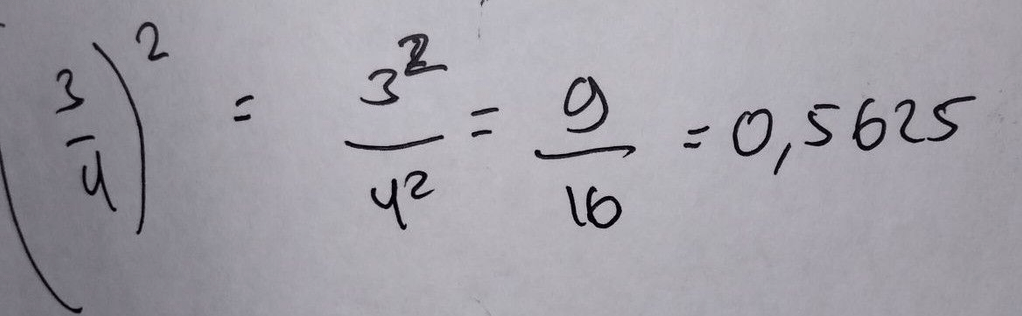 (3/4)² = 3²/4² = 9/16 = 0,5625